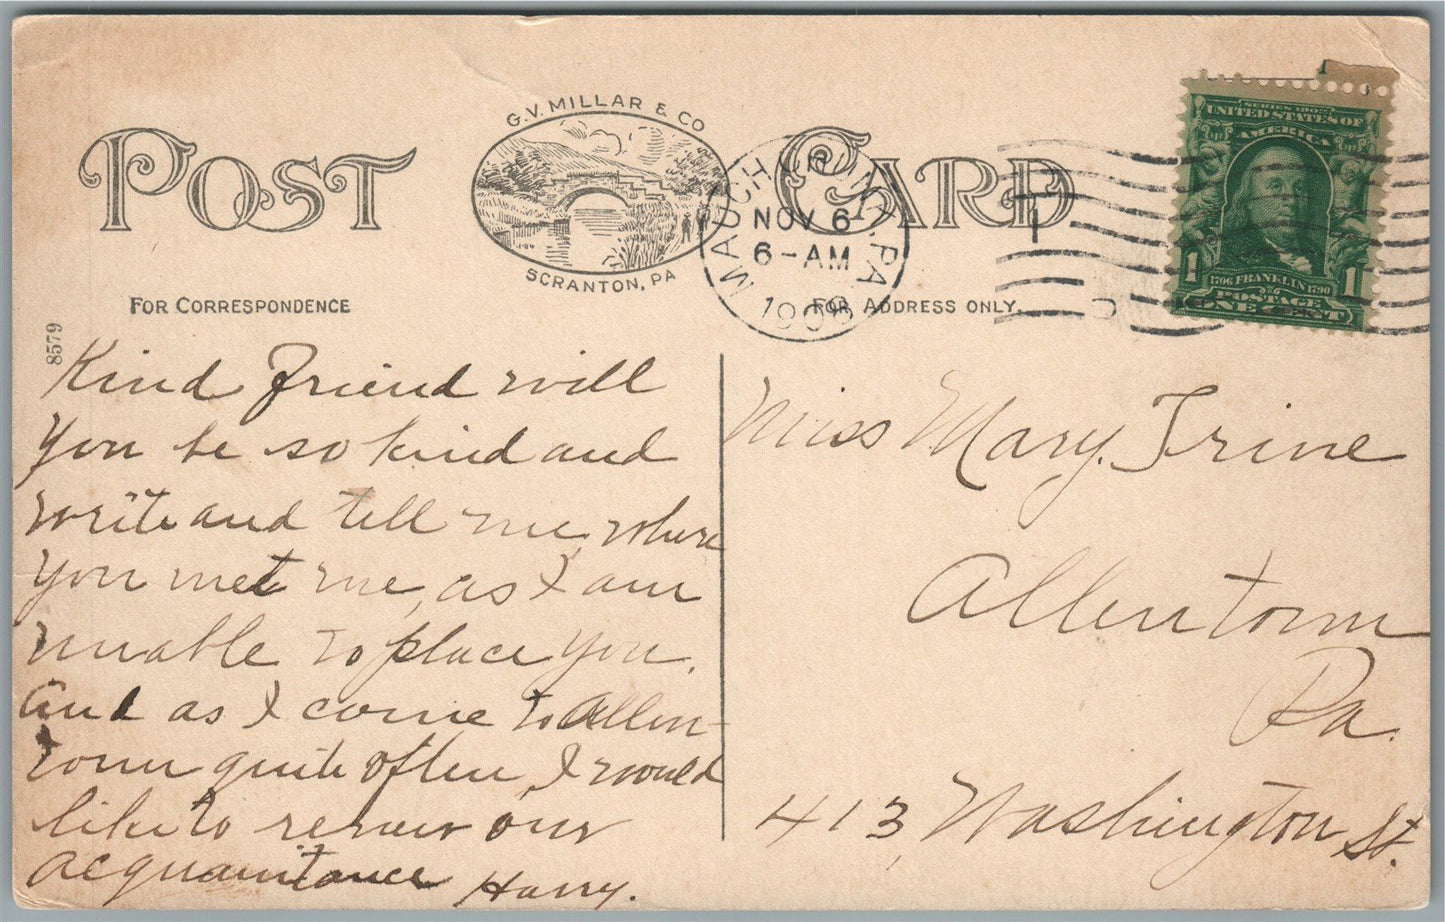 POST CARD
G.V. MILLAR & CO
SCRANTON, PA
MAUCH CHUNK, PA
NOV 6
6-AM
1908
SERIES 1902
UNITED STATES OF
AMERICA
1 1706 FRANKLIN 1790 1
POSTAGE
ONE CENT
FOR CORRESPONDENCE
FOR ADDRESS ONLY.
8579
Kind Friend will
you be so kind and
write and tell me, where
you met me, as I am
unable to place you.
and as I come to Allen-
town quite often, I would
like to renew our
acquaintance Harry.
Miss Mary. Trine
Allentown
Pa.
413, Washington St.